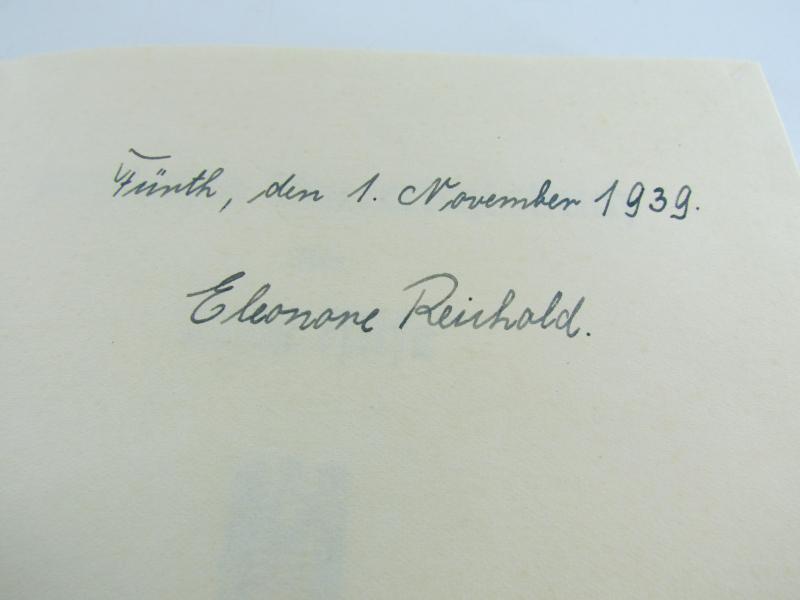 Fürth, den 1. November 1939.
Eleonore Reichold.